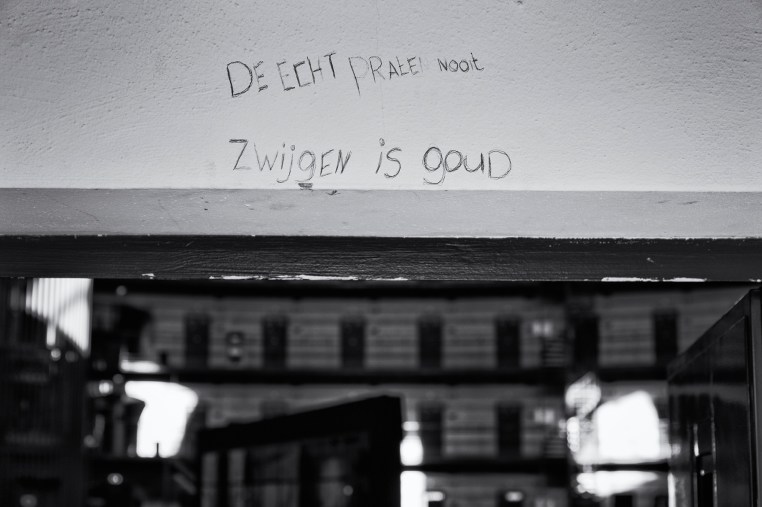 DE ECHT PRATEN NOOIT
ZWIJGEN iS gOUD